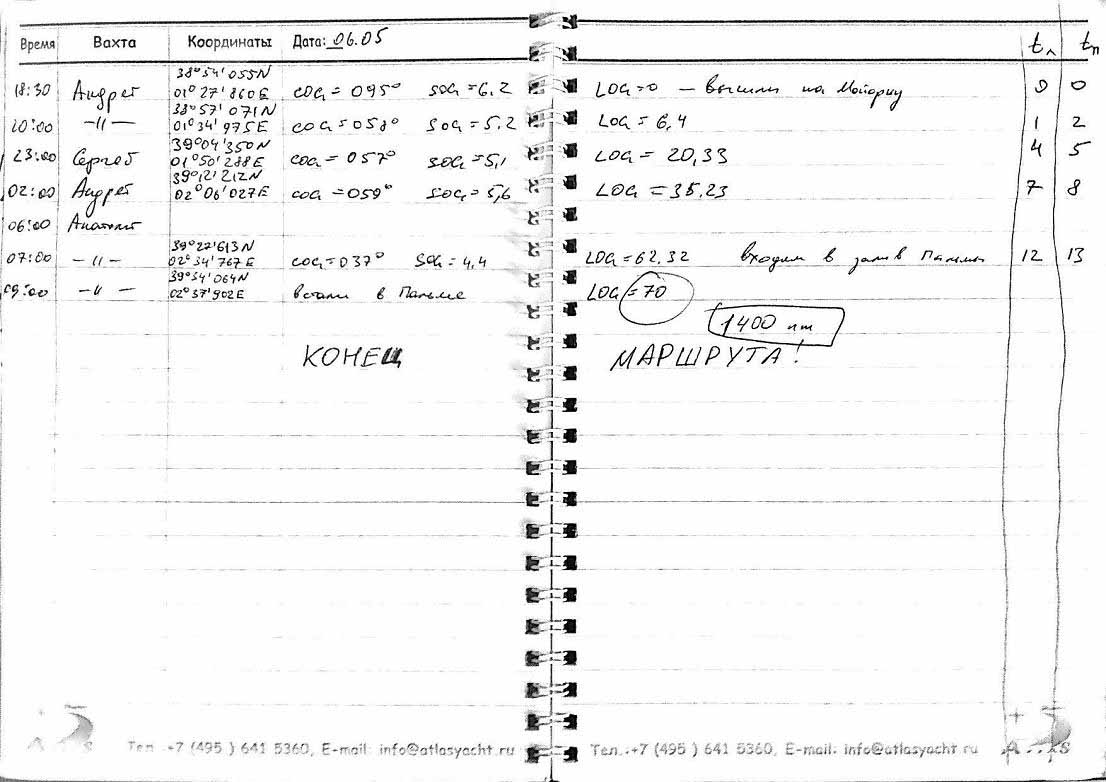 Время Вахта Координаты Дата: 06.05 tл tп
38°54'055N
18:30 Андрей 01°27'860E COG = 095° SOG = 6,2 LOG = 0 — вышли на Майорку 0 0
38°57'071N
20:00 —〃— 01°34'975E COG = 058° SOG = 5,2 LOG = 6,4 1 2
39°04'350N
23:00 Сергей 01°50'288E COG = 057° SOG = 5,1 LOG = 20,33 4 5
39°12'212N
02:00 Андрей 02°06'027E COG = 059° SOG = 5,6 LOG = 35.23 7 8
06:00 Анатолий
39°27'613N
07:00 —〃— 02°34'767E COG = 037° SOG = 4,4 LOG = 62,32 входим в залив Пальмы 12 13
39°34'064N
09:00 —〃— 02°37'902E встали в Пальме LOG = 70
1400 nm
КОНЕЦ МАРШРУТА!
Тел.:+7 (495 ) 641 5360, E-mail: info@atlasyacht.ru
Тел.:+7 (495 ) 641 5360, E-mail: info@atlasyacht.ru